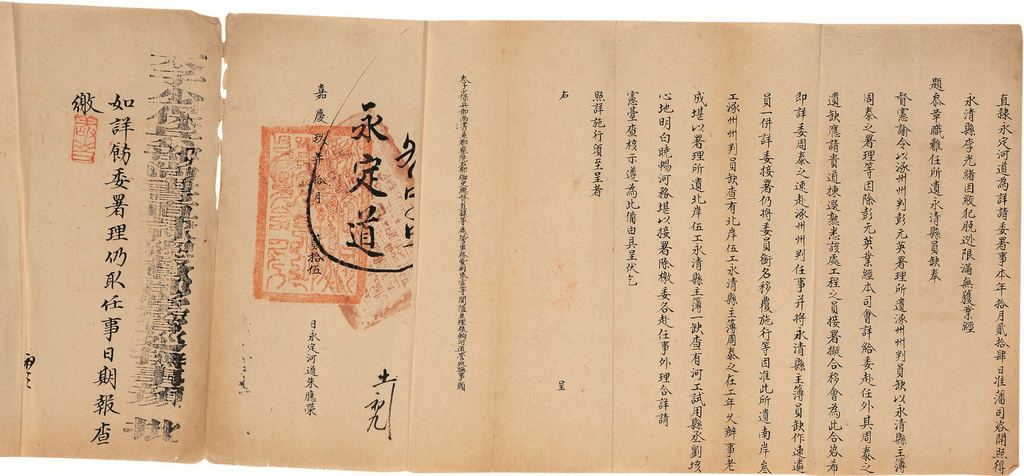 直隸永定河道爲詳請委署事本年拾月貳拾肆日准藩司咨開照得
永清縣李光緒因絞犯脫逃限滿無獲業經
題叅革職離任所遺永清縣員缺奉
督憲諭令以涿州州判彭元英署理所遺涿州州判員缺以永清縣主簿
周泰之署理等因除彭元英業經本司會詳給委赴任外其周泰之
遺缺應請貴道遴選熟悉該處工程之員接署擬合移會爲此合咨希
即詳委周泰之速赴涿州州判任事并將永清縣主簿員缺作速遴
員一併詳委接署仍將委員銜名移覆施行等因准此所遺南岸叁
工涿州州判員缺查有北岸伍工永清縣主簿周泰之在工年久辦事老
成堪以署理所遺北岸伍工永清縣主簿一缺查有河工試用縣丞劉垓
心地明白曉暢河務堪以接署除檄委各赴任事外理合詳請
憲臺查核示遵爲此備由具呈伏乞
照詳施行須至呈者
右 呈
嘉慶玖年拾 月 貳拾伍 日永定河道朱應榮
永定道
如詳飭委署理仍取任事日期報查
繳